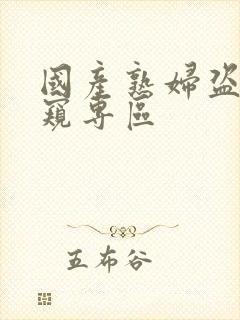 國產熟婦盜
窺專區
五布谷